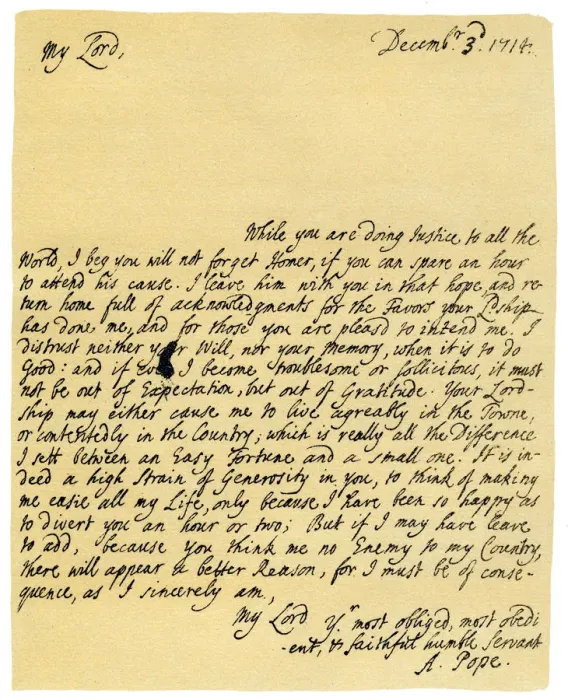 My Lord,
Decembr. 3d. 1714.
While you are doing Justice to all the
World, I beg you will not forget Homer, if you can spare an hour
to attend his cause. I leave him with you in that hope, and re-
turn home full of acknowledgments for the Favors your Lpship
has done me, and for those you are pleasd to intend me. I
distrust neither your Will, nor your Memory, when it is to do
Good: and if ever I become troublesome or sollicitous, it must
not be out of Expectation, but out of Gratitude. Your Lord-
ship may either cause me to live agreably in the Towne,
or contentedly in the Country; which is really all the Difference
I sett between an Easy Fortune and a small one. It is in-
deed a high Strain of Generosity in you, to think of making
me easie all my Life, only because I have been so happy as
to divert you an hour or two; But if I may have leave
to add, because you think me no Enemy to my Country,
there will appear a better Reason, for I must be of conse-
quence, as I sincerely am,
My Lord yr. most obliged, most obedi
-ent, & faithful humble Servant
A. Pope.